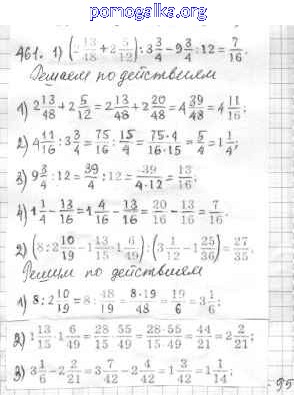 pomogalka.org
461. 1) (2 13/48 + 2 5/12) : 3 3/4 − 9 3/4 : 12 = 7/16.
Решаем по действиям
1) 2 13/48 + 2 5/12 = 2 13/48 + 2 20/48 = 4 39/48 = 4 11/16;
2) 4 11/16 : 3 3/4 = 75/16 : 15/4 = 75·4/16·15 = 5/4 = 1 1/4;
3) 9 3/4 : 12 = 39/4 : 12 = 39/4·12 = 13/16.
4) 1 1/4 − 13/16 = 1 4/16 − 13/16 = 20/16 − 13/16 = 7/16.
2) (8 : 2 10/19 − 1 13/15 · 1 6/49) : (3 1/12 − 1 25/36) = 27/35.
Решим по действиям
1) 8 : 2 10/19 = 8 : 48/19 = 8·19/48 = 19/6 = 3 1/6;
2) 1 13/15 · 1 6/49 = 28/15 · 55/49 = 28·55/15·49 = 44/21 = 2 2/21;
3) 3 1/6 − 2 2/21 = 3 7/42 − 2 4/42 = 1 3/42 = 1 1/14;